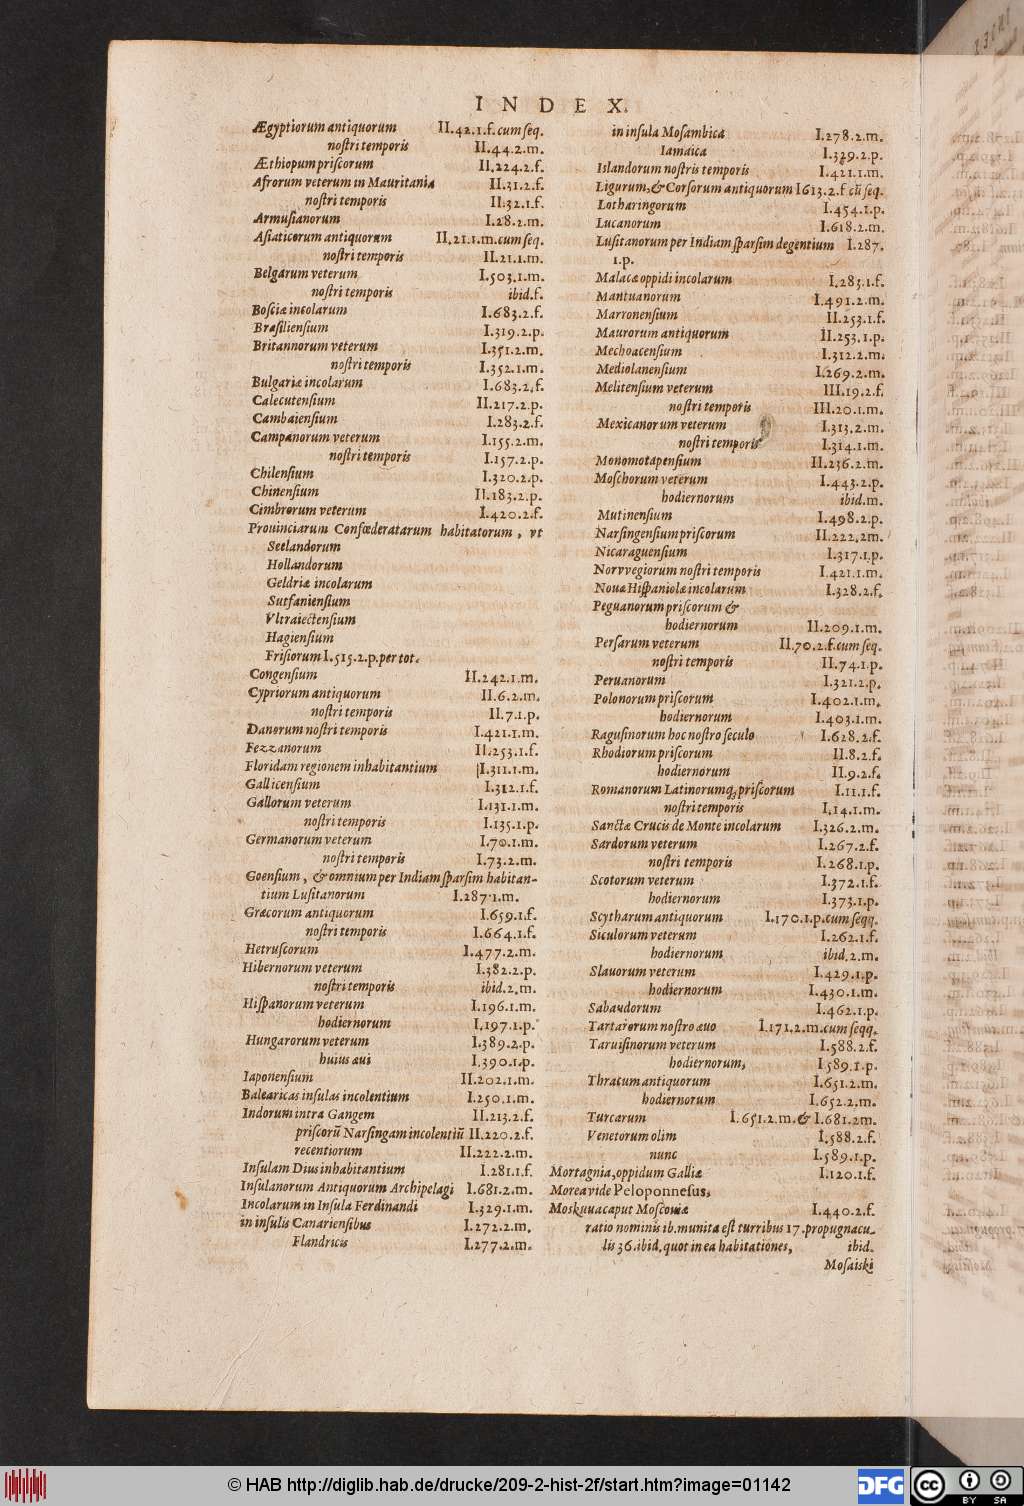 INDEX.
Ægyptiorum antiquorum II.42.1.f.cum ſeq.
noſtri temporis II.44.2.m.
Æthiopum priſcorum II.224.2.f.
Afrorum veterum in Mauritania II.31.2.f.
noſtri temporis II.32.1.f.
Armuſianorum I.28.2.m.
Aſiaticorum antiquorum II.21.1.m.cum ſeq.
noſtri temporis II.21.1.m.
Belgarum veterum I.503.1.m.
noſtri temporis ibid.f.
Boſciæ incolarum I.683.2.f.
Braſilienſium I.319.2.p.
Britannorum veterum I.351.2.m.
noſtri temporis I.352.1.m.
Bulgariæ incolarum I.683.2.f.
Calecutenſium II.217.2.p.
Cambaienſium I.283.2.f.
Campanorum veterum I.155.2.m.
noſtri temporis I.157.2.p.
Chilenſium I.320.2.p.
Chinenſium II.183.2.p.
Cimbrorum veterum I.420.2.f.
Prouinciarum Confœderatarum habitatorum, vt
Seelandorum
Hollandorum
Geldriæ incolarum
Sutfanienſium
Vltraiectenſium
Hagienſium
Friſiorum I.515.2.p.per tot.
Congenſium II.242.1.m.
Cypriorum antiquorum II.6.2.m.
noſtri temporis II.7.1.p.
Danorum noſtri temporis I.421.1.m.
Fezzanorum II.253.1.f.
Floridam regionem inhabitantium I.311.1.m.
Gallicenſium I.312.1.f.
Gallorum veterum I.131.1.m.
noſtri temporis I.135.1.p.
Germanorum veterum I.70.1.m.
noſtri temporis I.73.2.m.
Goenſium, & omnium per Indiam ſparſim habitan-
tium Luſitanorum I.287.1.m.
Græcorum antiquorum I.659.1.f.
noſtri temporis I.664.1.f.
Hetruſcorum I.477.2.m.
Hibernorum veterum I.382.2.p.
noſtri temporis ibid.2.m.
Hiſpanorum veterum I.196.1.m.
hodiernorum I.197.1.p.
Hungarorum veterum I.389.2.p.
huius æui I.390.1.p.
Iaponenſium II.202.1.m.
Balearicas inſulas incolentium I.250.1.m.
Indorum intra Gangem II.213.2.f.
priſcorũ Narſingam incolentiũ II.220.2.f.
recentiorum II.222.2.m.
Inſulam Dius inhabitantium I.281.1.f.
Inſulanorum Antiquorum Archipelagi I.681.2.m.
Incolarum in Inſula Ferdinandi I.329.1.m.
in inſulis Canarienſibus I.272.2.m.
Flandricis I.277.2.m.
in inſula Moſambica I.278.2.m.
Iamaica I.329.2.p.
Islandorum noſtris temporis I.421.1.m.
Ligurum, & Corſorum antiquorum I 613.2.f cũ ſeq.
Lotharingorum I.454.1.p.
Lucanorum I.618.2.m.
Luſitanorum per Indiam ſparſim degentium I.287.
1.p.
Malacæ oppidi incolarum I.283.1.f.
Mantuanorum I.491.2.m.
Marronenſium II.253.1.f.
Maurorum antiquorum II.253.1.p.
Mechoacenſium I.312.2.m.
Mediolanenſium I.269.2.m.
Melitenſium veterum III.19.2.f.
noſtri temporis III.20.1.m.
Mexicanorum veterum I.313.2.m.
noſtri temporis I.314.1.m.
Monomotapenſium II.236.2.m.
Moſchorum veterum I.443.2.p.
hodiernorum ibid.m.
Mutinenſium I.498.2.p.
Narſingenſium priſcorum II.222.2m.
Nicaraguenſium I.317.1.p.
Norvvegiorum noſtri temporis I.421.1.m.
Nouæ Hiſpaniolæ incolarum I.328.2.f.
Peguanorum priſcorum &
hodiernorum II.209.1.m.
Perſarum veterum II.70.2.f.cum ſeq.
noſtri temporis II.74.1.p.
Peruanorum I.321.2.p.
Polonorum priſcorum I.402.1.m.
hodiernorum I.403.1.m.
Raguſinorum hoc noſtro ſeculo I.628.2.f.
Rhodiorum priſcorum II.8.2.f.
hodiernorum II.9.2.f.
Romanorum Latinorumq; priſcorum I.11.1.f.
noſtri temporis I.14.1.m.
Sanctæ Crucis de Monte incolarum I.326.2.m.
Sardorum veterum I.267.2.f.
noſtri temporis I.268.1.p.
Scotorum veterum I.372.1.f.
hodiernorum I.373.1.p.
Scytharum antiquorum I.170.1.p.cum ſeqq.
Siculorum veterum I.262.1.f.
hodiernorum ibid.2.m.
Slauorum veterum I.429.1.p.
hodiernorum I.430.1.m.
Sabaudorum I.462.1.p.
Tartarorum noſtro æuo I.171.2.m.cum ſeqq.
Taruiſinorum veterum I.588.2.f.
hodiernorum, I.589.1.p.
Thracum antiquorum I.651.2.m.
hodiernorum I.652.2.m.
Turcarum I.651.2.m.& I.681.2m.
Venetorum olim I.588.2.f.
nunc I.589.1.p.
Mortagnia, oppidum Galliæ I.120.1.f.
Morea vide Peloponneſus.
Moskuua caput Moſcouiæ I.440.2.f.
ratio nominis ib. munita eſt turribus 17. propugnacu-
lis 36. ibid. quot in ea habitationes, ibid.
Moſaiski
© HAB http://diglib.hab.de/drucke/209-2-hist-2f/start.htm?image=01142
DFG
cc BY SA